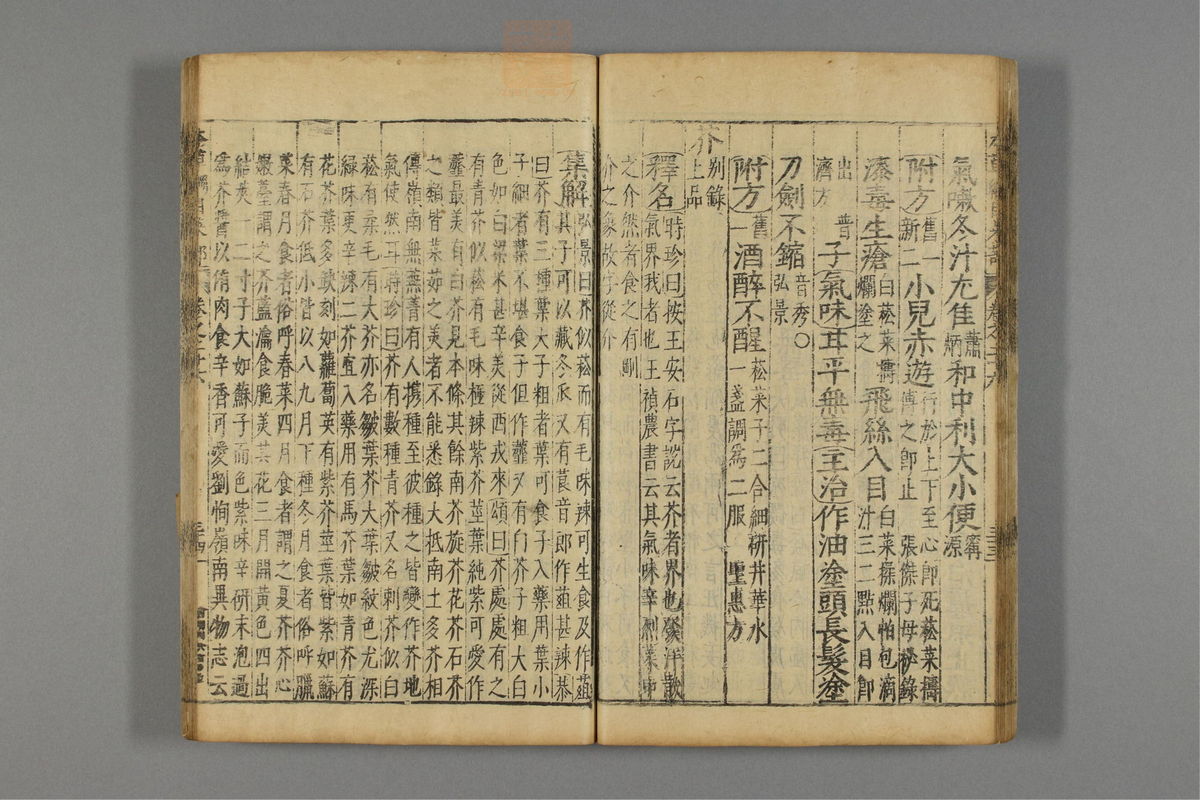 氣嗽冬汁尤佳蕭炳和中利大小便甯源
附方舊一新二小兒赤遊行於上下至心即死菘菜擣傅之即止張傑子母秘錄
漆毒生瘡白菘菜擣爛塗之飛絲入目白菜揉爛帕包滴汁三二點入目即
出普濟方子氣味甘平無毒主治作油塗頭長髮塗
刀劍不鏥音秀〇弘景
附方舊一酒醉不醒菘菜子二合細研井華水一盞調為二服聖惠方
芥別錄上品
釋名時珍曰按王安石字說云芥者界也發汗散氣界我者也王禎農書云其氣味辛烈菜中
之介然者食之有剛介之象故字從介
集解弘景曰芥似菘而有毛味辣可生食及作菹其子可以藏冬瓜又有莨音郎作菹甚辣恭
曰芥有三種葉大子粗者葉可食子入藥用葉小子細者葉不堪食子但作虀又有白芥子粗大白
色如白粱米甚辛美從西戎來頌曰芥處處有之有青芥似菘有毛味極辣紫芥莖葉純紫可愛作
虀最美有白芥見本條其餘南芥旋芥花芥石芥之類皆菜茹之美者不能悉錄大抵南土多芥相
傳嶺南無蕪菁有人攜種至彼種之皆變作芥地氣使然耳時珍曰芥有數種青芥又名刺芥似白
菘有柔毛有大芥亦名皺葉芥大葉皺紋色尤深綠味更辛辣二芥宜入藥用有馬芥葉如青芥有
花芥葉多缺刻如蘿蔔英有紫芥莖葉皆紫如蘇有石芥低小皆以八九月下種冬月食者俗呼臘
菜春月食者俗呼春菜四月食者謂之夏芥芥心嫩薹謂之芥藍瀹食脆美其花三月開黃色四出
結莢一二寸子大如蘇子而色紫味辛研末泡過為芥醬以侑肉食辛香可愛劉恂嶺南異物志云